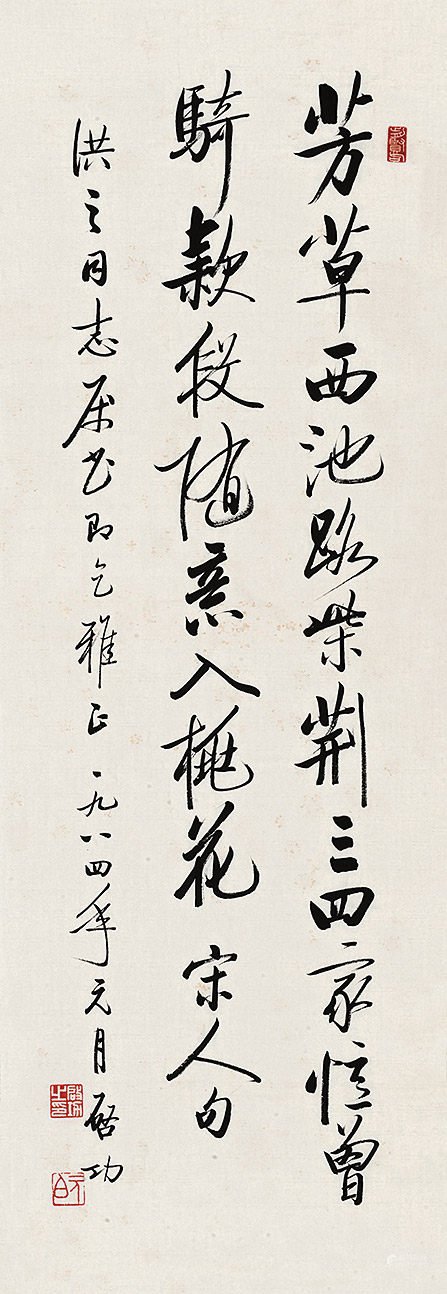 芳草西池路柴荆三四家憶曾
騎款段随意入桃花 宋人句
洪之同志属书即乞雅正 一九八四年元月 啓功
啓功之印
元白